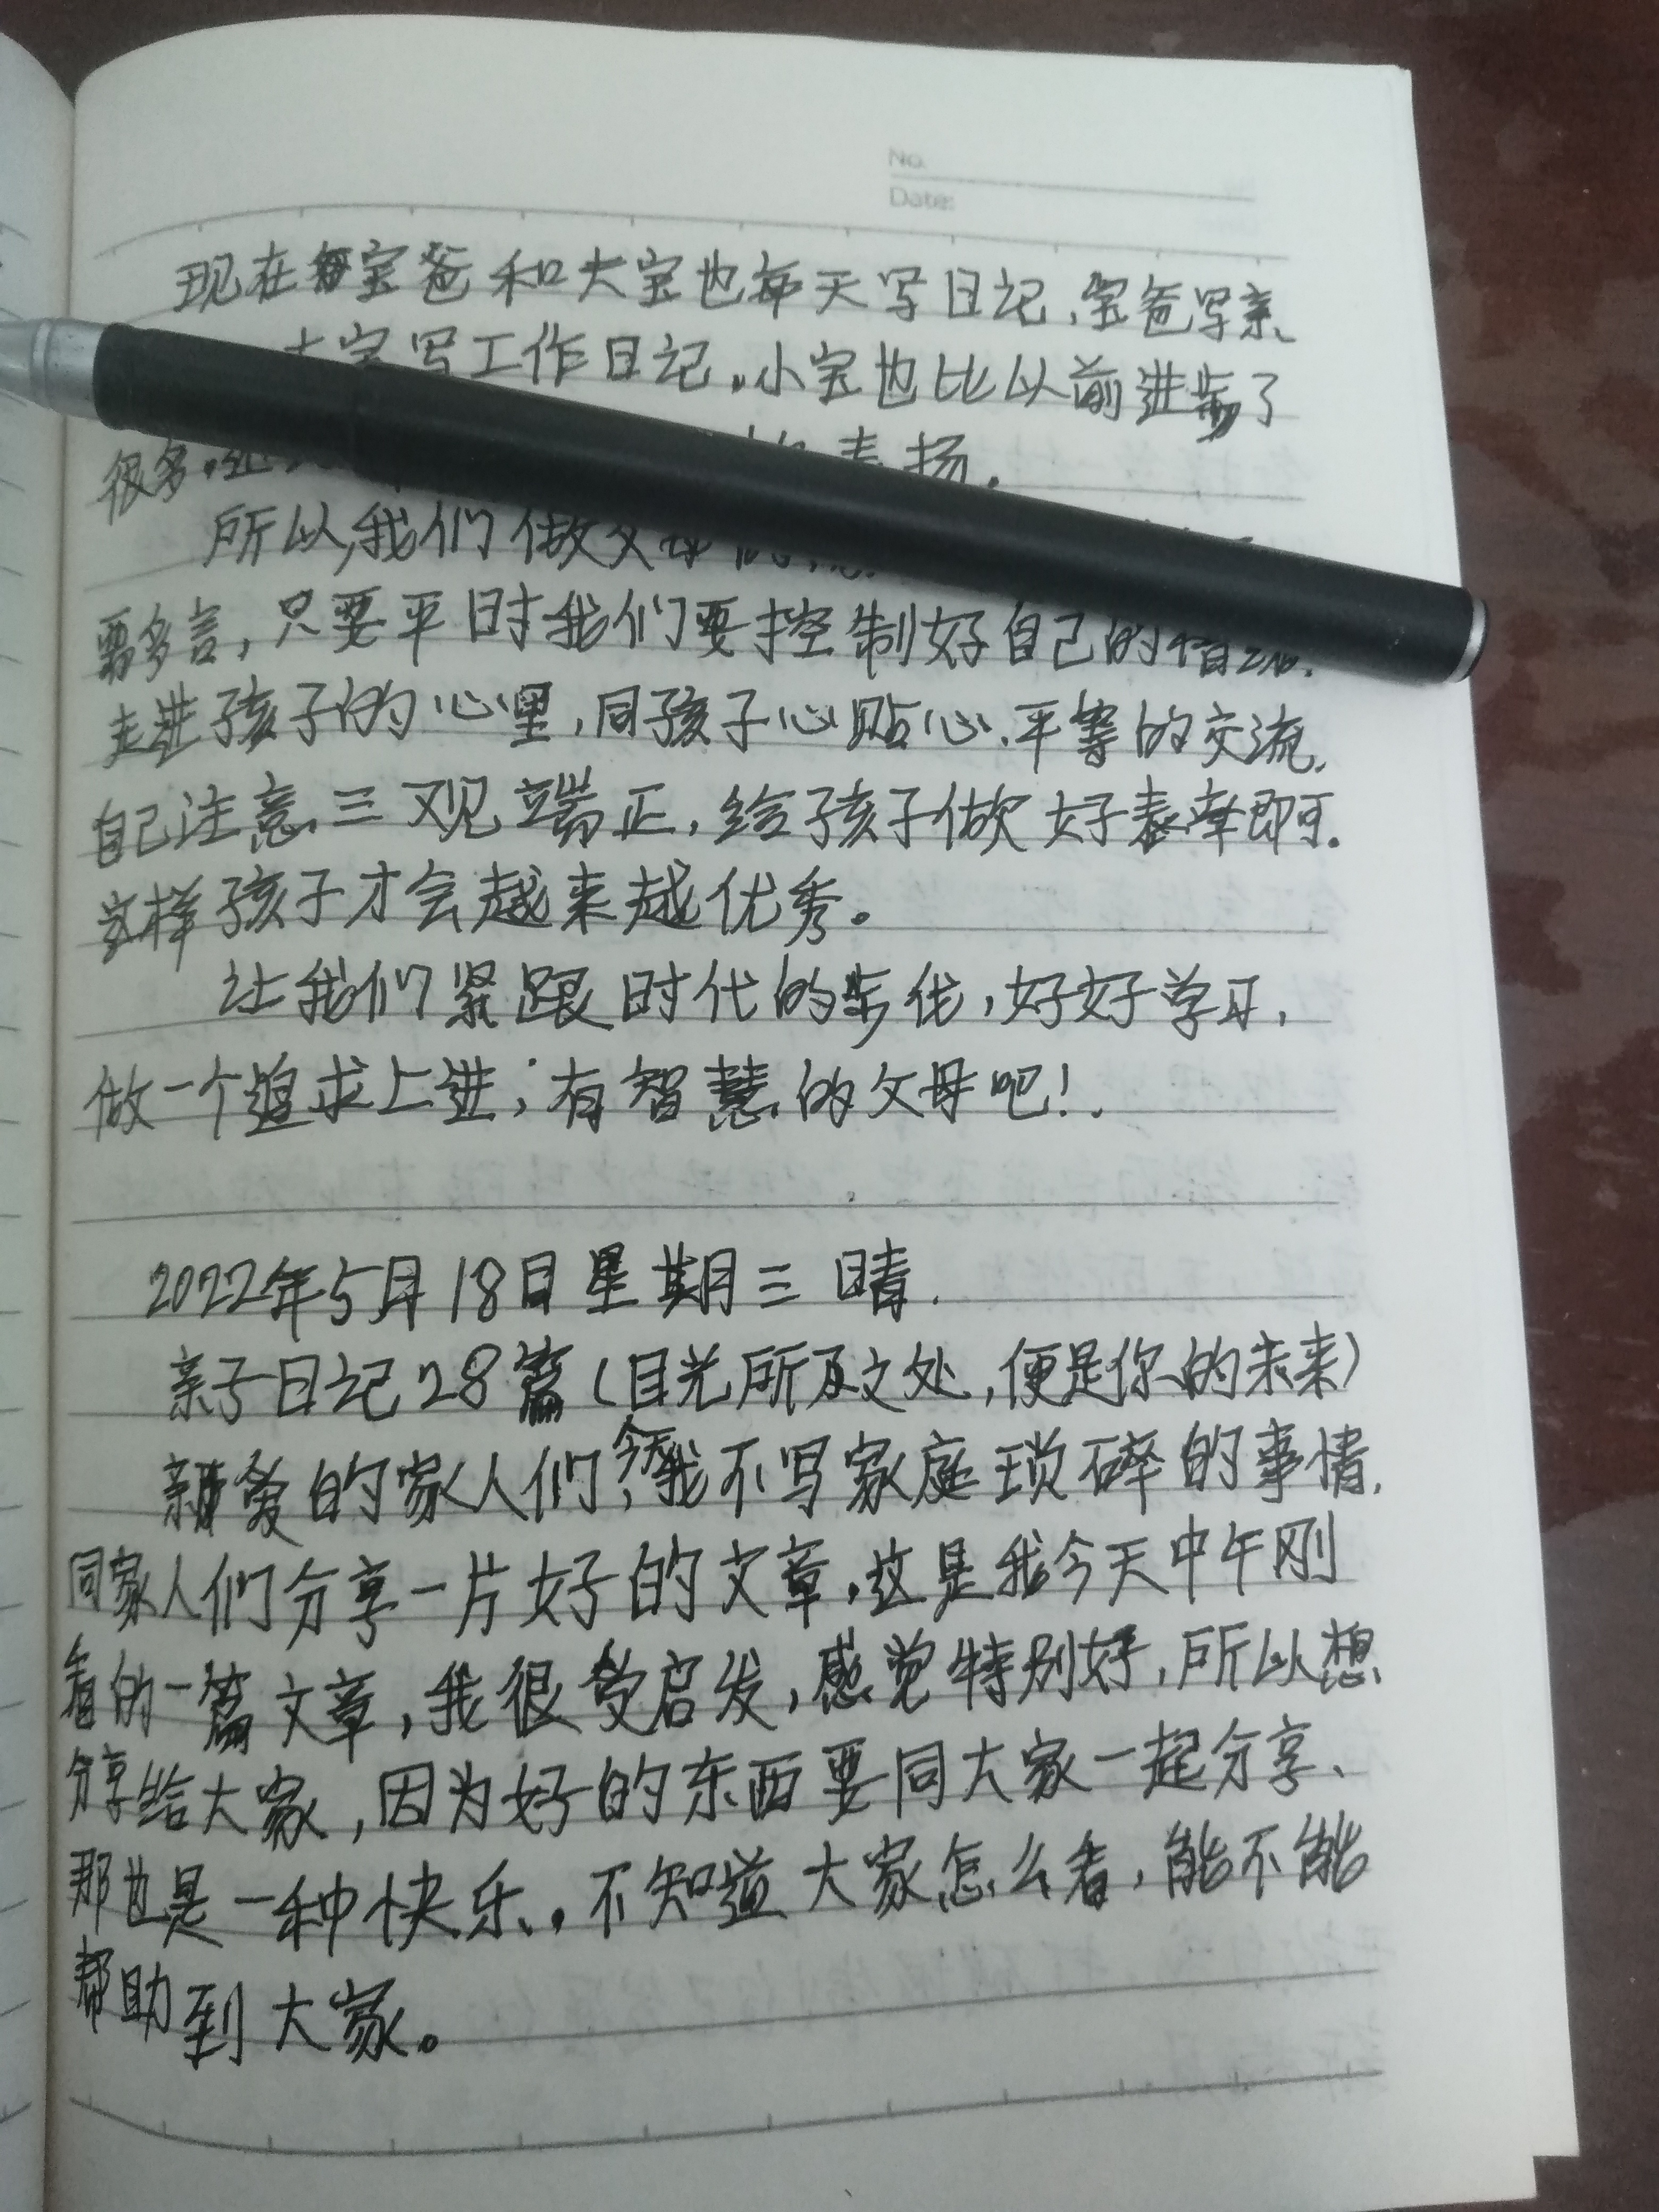 No.
Date:
现在宝爸和大宝也每天写日记,宝爸写亲
大宝写工作日记.小宝也比以前进步了
很多.表扬.
所以,我们做父母
要多言,只要平时我们要控制好自己的情绪.
走进孩子的心里,同孩子心贴心.平等的交流.
自己注意三观端正,给孩子做好表率即可.
这样孩子才会越来越优秀。
让我们紧跟时代的步伐,好好学习,
做一个追求上进;有智慧的父母吧!.
2022年5月18日星期三 晴.
亲子日记28篇(目光所及之处,便是你的未来)
亲爱的家人们,今天我不写家庭琐碎的事情.
同家人们分享一片好的文章.这是我今天中午刚
看的一篇文章,我很受启发,感觉特别好,所以想
分享给大家,因为好的东西要同大家一起分享、
那也是一种快乐.不知道大家怎么看,能不能
帮助到大家。